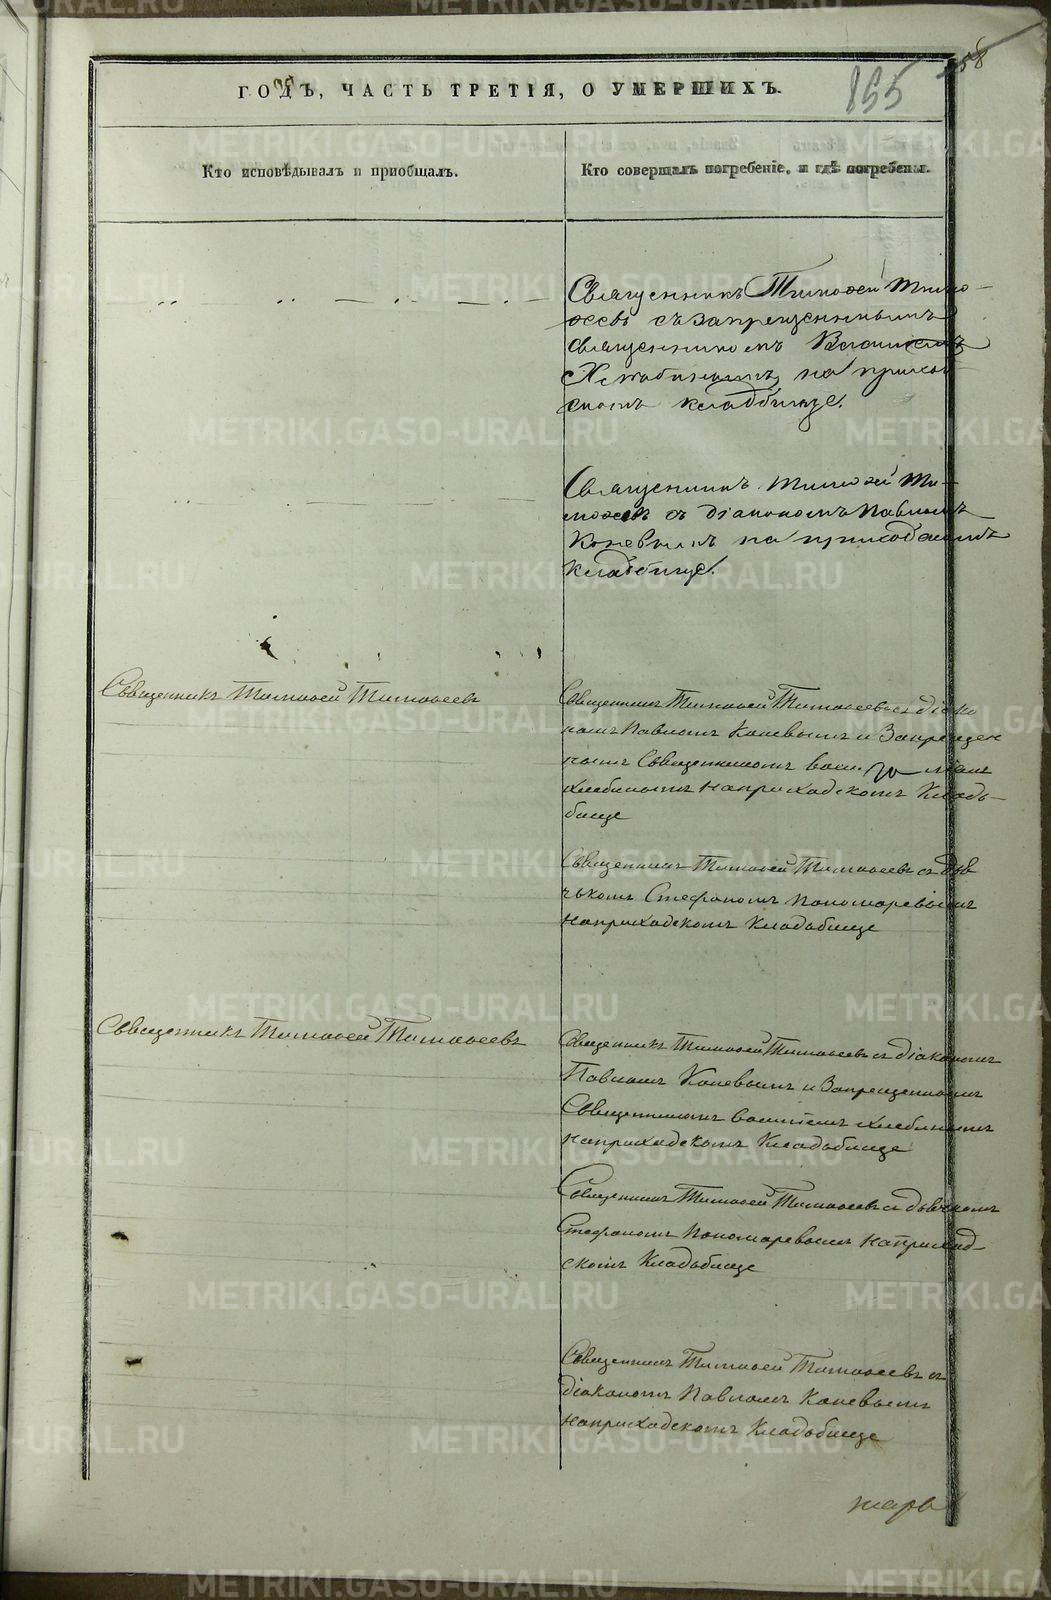 158
155
ГОДЪ, ЧАСТЬ ТРЕТІЯ, О УМЕРШИХЪ.
Кто исповѣдывалъ и пріобщалъ.
Кто совершалъ погребеніе, и гдѣ погребены.
Священникъ Тимофей Тимо-
феевъ съ запрещеннымъ
священникомъ
на приход
скомъ кладбищѣ.
Священникъ Тимофей Ти-
мофеевъ съ діакономъ Павломъ
Коневымъ на приходскомъ
кладбищѣ.
Священникъ Тимофей Тимофеевъ
Священникъ Тимофей Тимофеевъ съ діако
номъ Павломъ Коневымъ и Запрещен
нымъ Священникомъ
Хлебинымъ на приходскомъ Кладъ-
бище
Священникъ Тимофей Тимофеевъ съ дья
чькомъ Стефаномъ Пономаревымъ
на приходскомъ Кладьбище
Священникъ Тимофей Тимофеевъ
Священникъ Тимофей Тимофеевъ съ діакономъ
Павломъ Коневымъ и Запрещеннымъ
Священникомъ Хлебинымъ
на приходскомъ Кладьбище
Священникъ Тимофей Тимофеевъ съ дьячкомъ
Стефаномъ Пономаревымъ на приход-
скомъ Кладьбище
Священникъ Тимофей Тимофеевъ съ
діакономъ Павломъ Коневымъ
на приходскомъ Кладьбище
METRIKI.GASO-URAL.RU